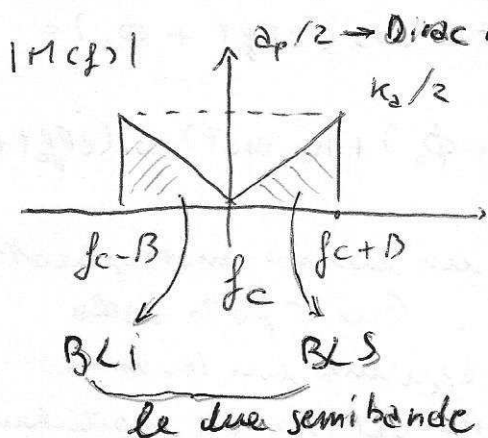 |M(f)|
a_p/2 → Dirac
k_a/2
f_c-B
f_c
f_c+B
BLi
BLS
le due semibande